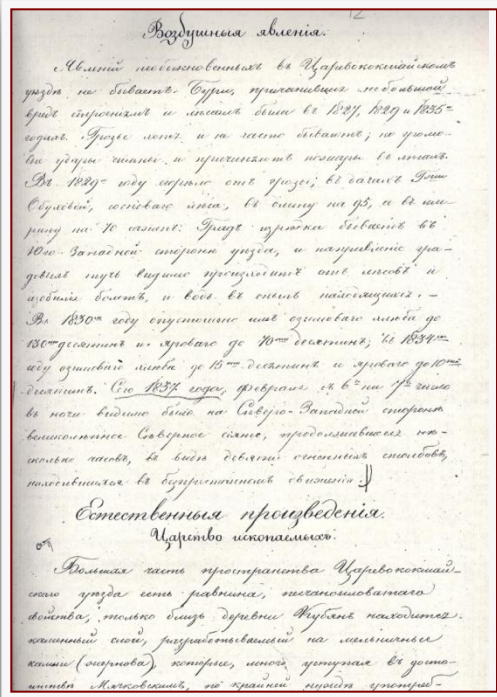 12
Воздушныя явленія.
Явленій необыкновенныхъ въ Царевококшайскомъ
уѣздѣ не бываетъ. Бури, причинившія небольшой
вредъ строеніямъ и лѣсамъ была въ 1827, 1829 и 1835
годахъ. Грозы хотя и не часто бываютъ; но громо-
вые удары и причиняютъ пожары въ лѣсахъ.
Въ 1829 году сгорѣло отъ грозы; въ дачахъ Г-жи
Обуховой, сосноваго лѣса, въ длину на 95, а въ ши-
рину на 70 сажень. Градъ изрѣдка бываетъ въ
Юго-Западной сторонѣ уѣзда, и направленіе гра-
довыхъ тучь видимо происходитъ отъ лѣсовъ и
изобилія болотъ, и водъ въ оныхъ находящихся. —
Въ 1830 году опустошено имъ озимоваго хлѣба до
130 десятинъ и яроваго до 70 десятинъ; въ 1834
году озимаго хлѣба до 15 десятинъ и яроваго до 10
десятинъ. Сего 1837 года, Февраля съ 6 на 7 число
въ ночи видимо было на Сѣверо-Западной сторонѣ
великолѣпное Сѣверное сіяніе, продолжавшееся нѣ-
сколько часовъ, въ видѣ девяти огненныхъ столбовъ,
находившихся въ безпрестанномъ движеніи.
Естественныя произведенія.
Царство ископаемыхъ.
Большая часть пространства Царевококшай-
скаго уѣзда есть равнина, песчаноиловатаго
свойства, только близь деревни находится
каменный слой, разработываемый на мельничные
камни (жернова), которые, много уступая въ досто-
инствѣ Мячковскимъ, по крайней нуждѣ употреб-